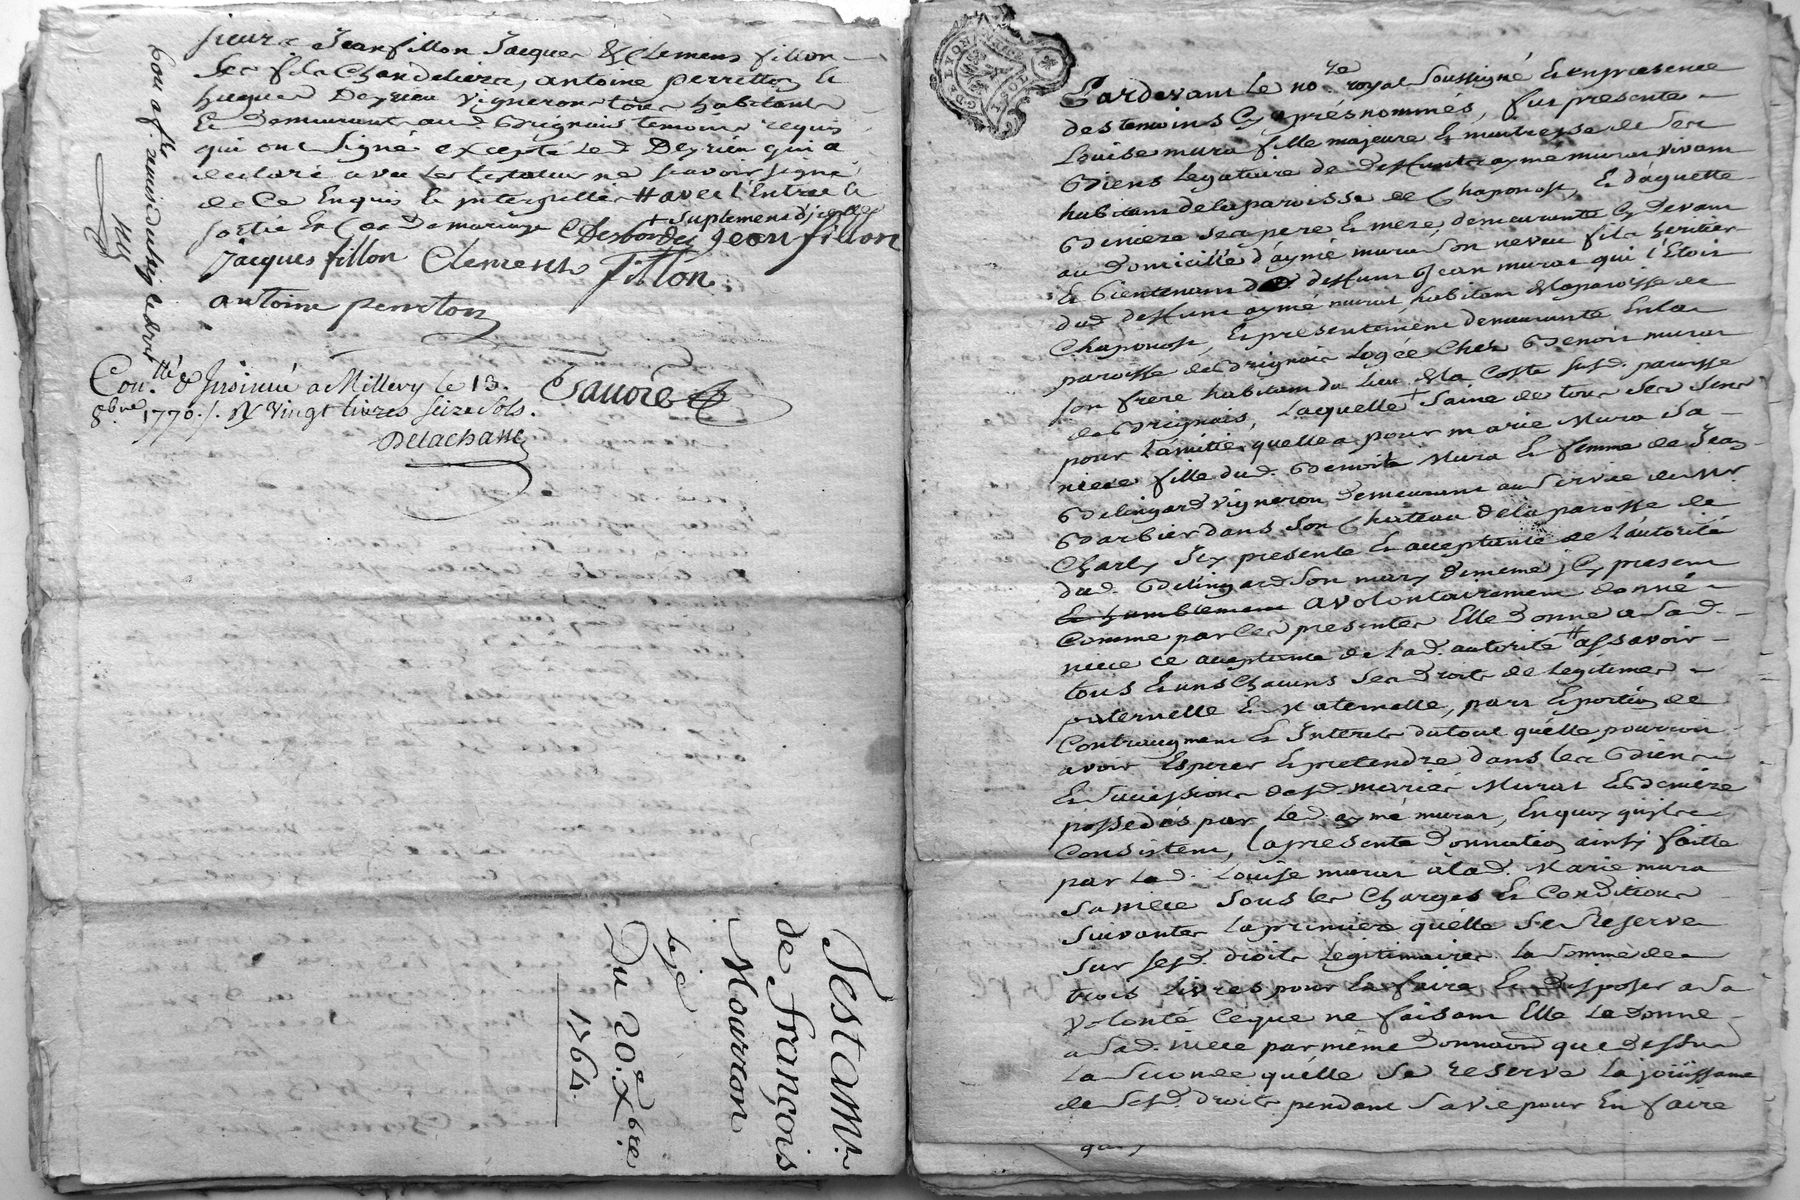 sieurs Jean fillon Jacques & Clemens fillon
ses fils Chandeliers, antoine perretton &
hugues Deyrieu vignerons tous habitants
& Demeurants aud. Brignais temoins requis
qui ont signé excepté led Deyrieu qui a
declaré avec le testateur ne scavoir signé
de ce Enquis & interpellés # avec l'Entrée &
sortie En
+ suplement d'icelle
Desbordes Jean fillon
Jacques fillon Clements fillon
antoine perretton
Con.llé & Insinué a Millery le 13.
8bre 1770. R vingt livres seize sols.
Delachasse
Testam.t
de François
Mourron
Du 20.e Xbre
1764.
Pardevant le no.re royal soussigné & en presence
des temoins Cy aprés nommés, fut presente
Louise mura fille majeure & maitresse de ses
Biens Legataire de deffunts aymé murat vivant
habitant de la paroisse de Chaponost, & d'aguette
Beniere ses pere & mere, demeurante Cy devant
au Domicille d'aymé murat son neveu fils heritier
& Bientenant de deffunt Jean murat qui l'Etoit
dud deffunt aymé murat, habitant de la paroisse de
Chaponost, & presentement demeurante En la
paroisse de Brignais logée Chez Benoit murat
son frere habitant du lieu de la Coste susd. paroisse
de Brignais, Laquelle + saine de tous ses sens
pour l'amittié quelle a pour marie Mura sa
niece fille dud. Benoit Mura & femme de Jean
Belingard vigneron Demeurant au service de Mr
Barbier dans son Chateau de la paroisse de
Charly Icy presente & acceptante de l'autorité
dud. Belingard son mary de meme Cy present
& humblement a volontairement donné
Comme par Ces presentes Elle Donne a sad.
niece ce acceptante de lad. autorité # assavoir
tous & uns Chacuns ses Droits de legitimes
paternelle & Maternelle, part & portion de
& Interets du tout qu'elle pourroit
avoir Esperer & pretendre dans les Biens
& successions desd. mariés Murat & Beniere
possedés par led aymé murat, En quoy qu'ils
Consistent, la presente Donnation ainsy faitte
par lad. Louise murat à lad. Marie mura
sa niece sous les Charges & Conditions
suivantes la premiere qu'elle se Reserve
sur sesd. droits legitimaires la somme de
trois Livres pour En faire & disposer a sa
volonté Ceque ne faisant Elle La Donne
a sad. niece par même Donnaon que dessus
La seconde qu'elle se reserve la joüissance
de sesd. droits pendant sa vie pour En faire